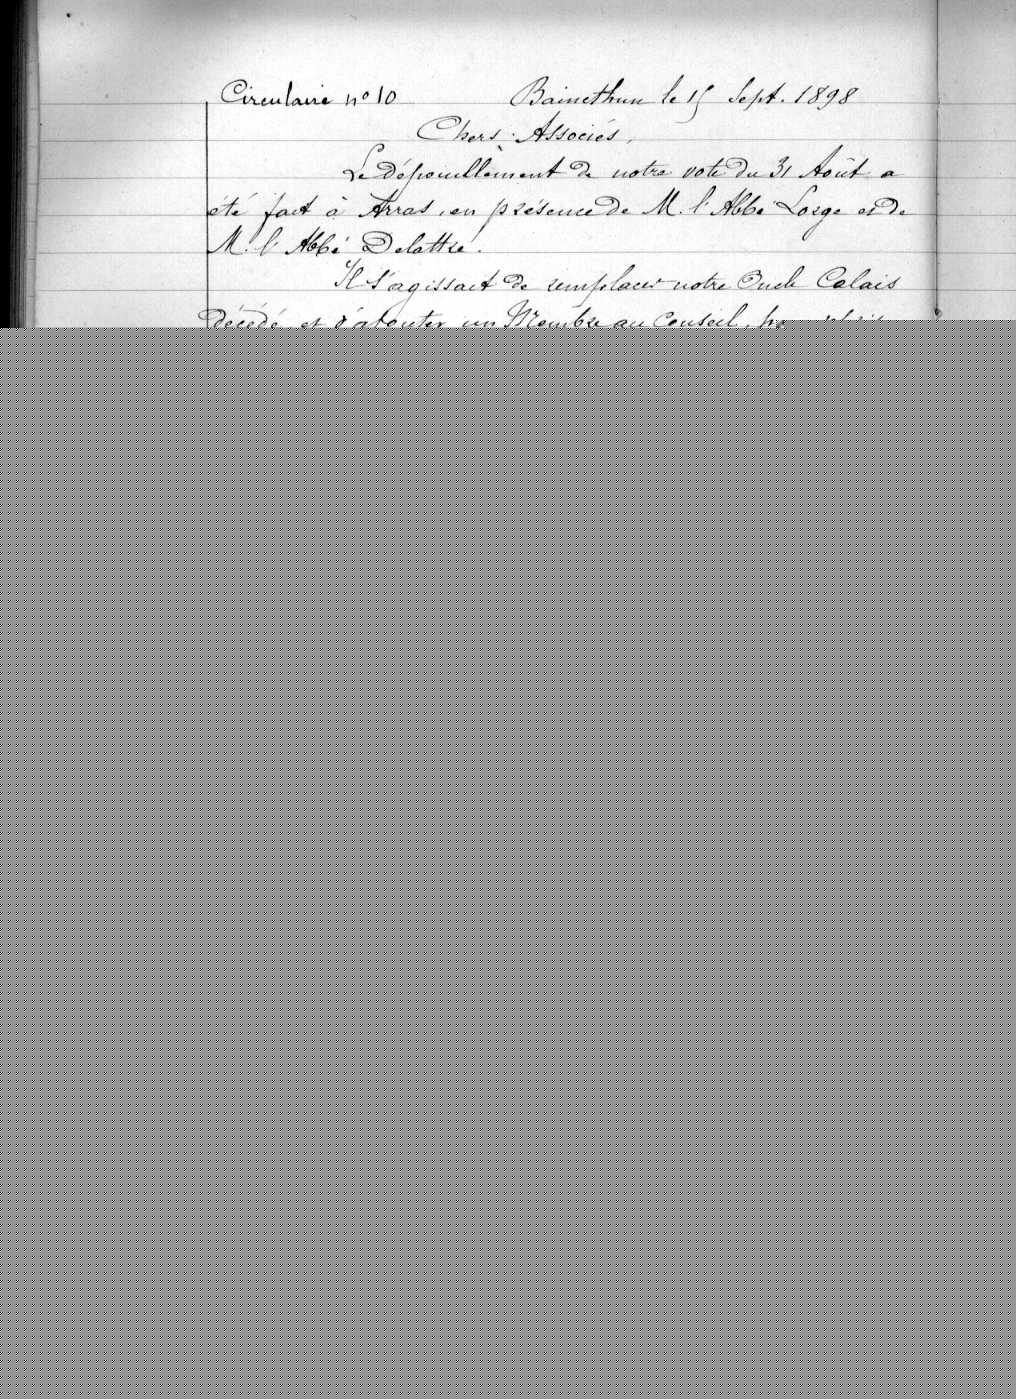 Circulaire n° 10 Bainethun le 15 Sept. 1898
Chers Associés,
Le dépouillement de notre vote du 31 Août a
été fait à Arras, en présence de M. l'Abbé Lorge et de
M. l'Abbé Delattre.
Il s'agissait de remplacer notre Oncle Calais
décédé et d'ajouter un Membre au Conseil,